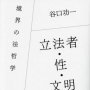 谷口功一
立法者
・性・
文明
境界の法哲学